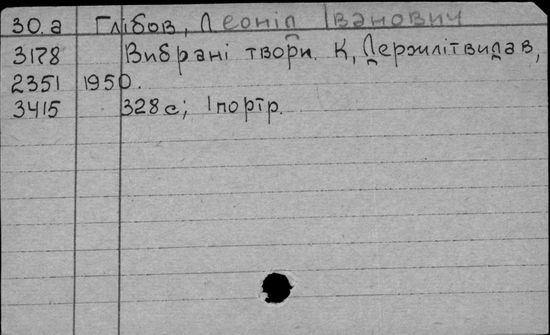 30.а Глібов, Леонід Іванович
3178 Вибрані твори. К, Держлітвидав,
2351 1950.
3415 328 с; 1 портр.